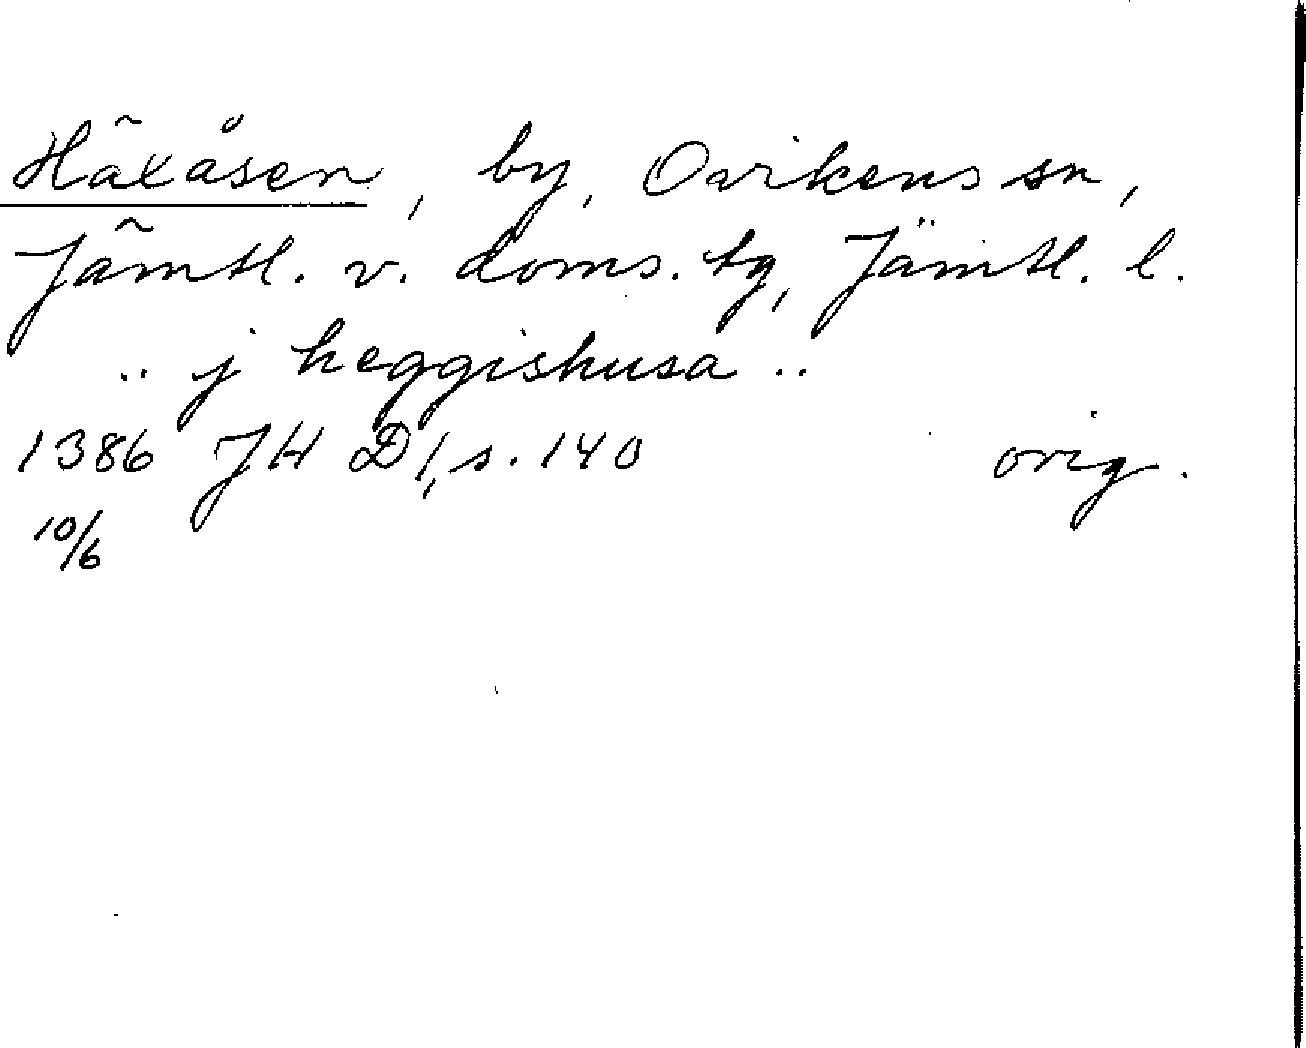 Häxåsen, by, Ovikens sn,
Jämtl. v. doms. tg, Jämtl. l.
.. j heggishusa ..
1386 JH D 1, s. 140 orig.
10/6